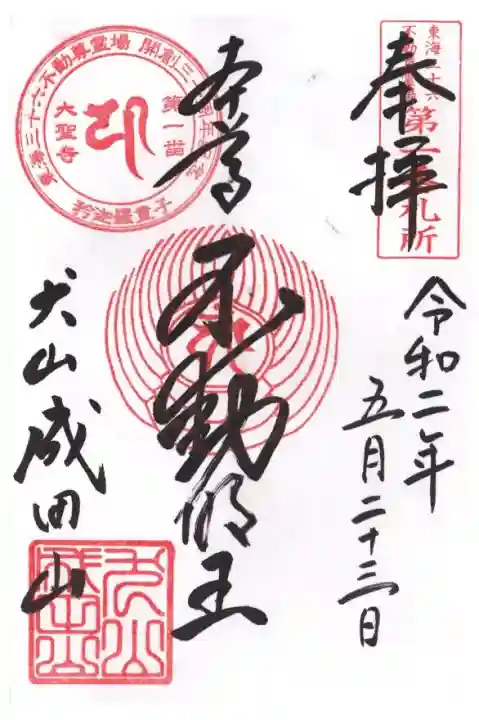 奉拝
東海三十六
不動尊霊場
第一番札所
令和二年
五月二十三日
本尊
不動明王
犬山成田山
東海三十六不動尊霊場 開創三十
第一番
大聖寺
矜迦羅童子